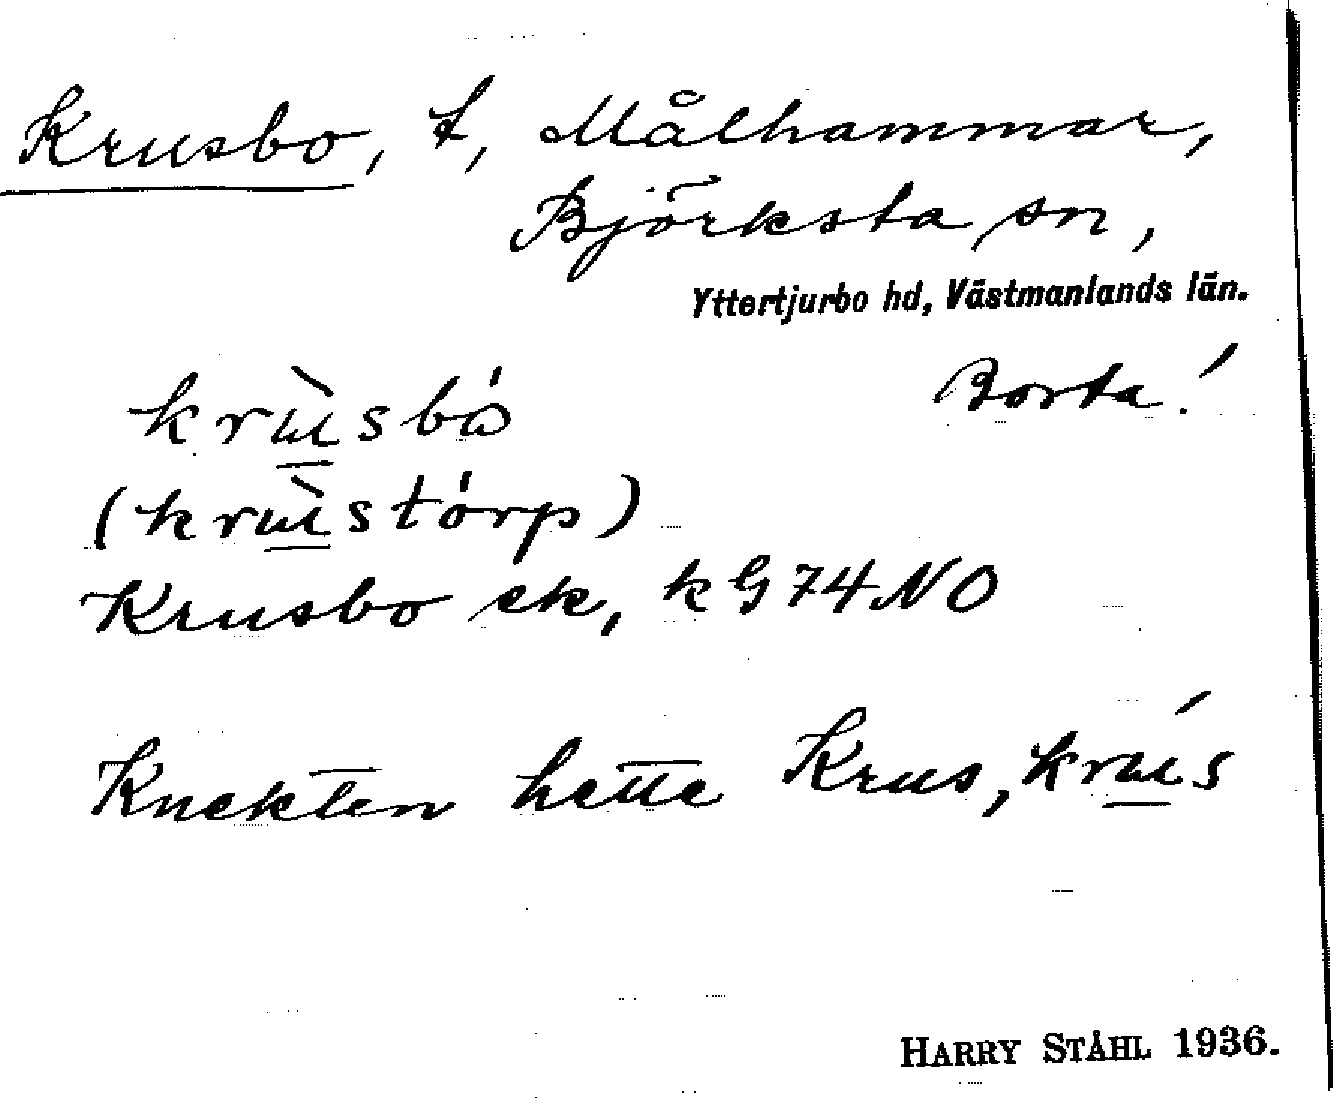 Krusbo, t, Målhammar,
Björksta sn,
Yttertjurbo hd, Västmanlands län.
Borta!
krùsbó
(krùstórp)
Krusbo ek, kG74NO
Knekten hette Krus, krús
HARRY STÅHL 1936.